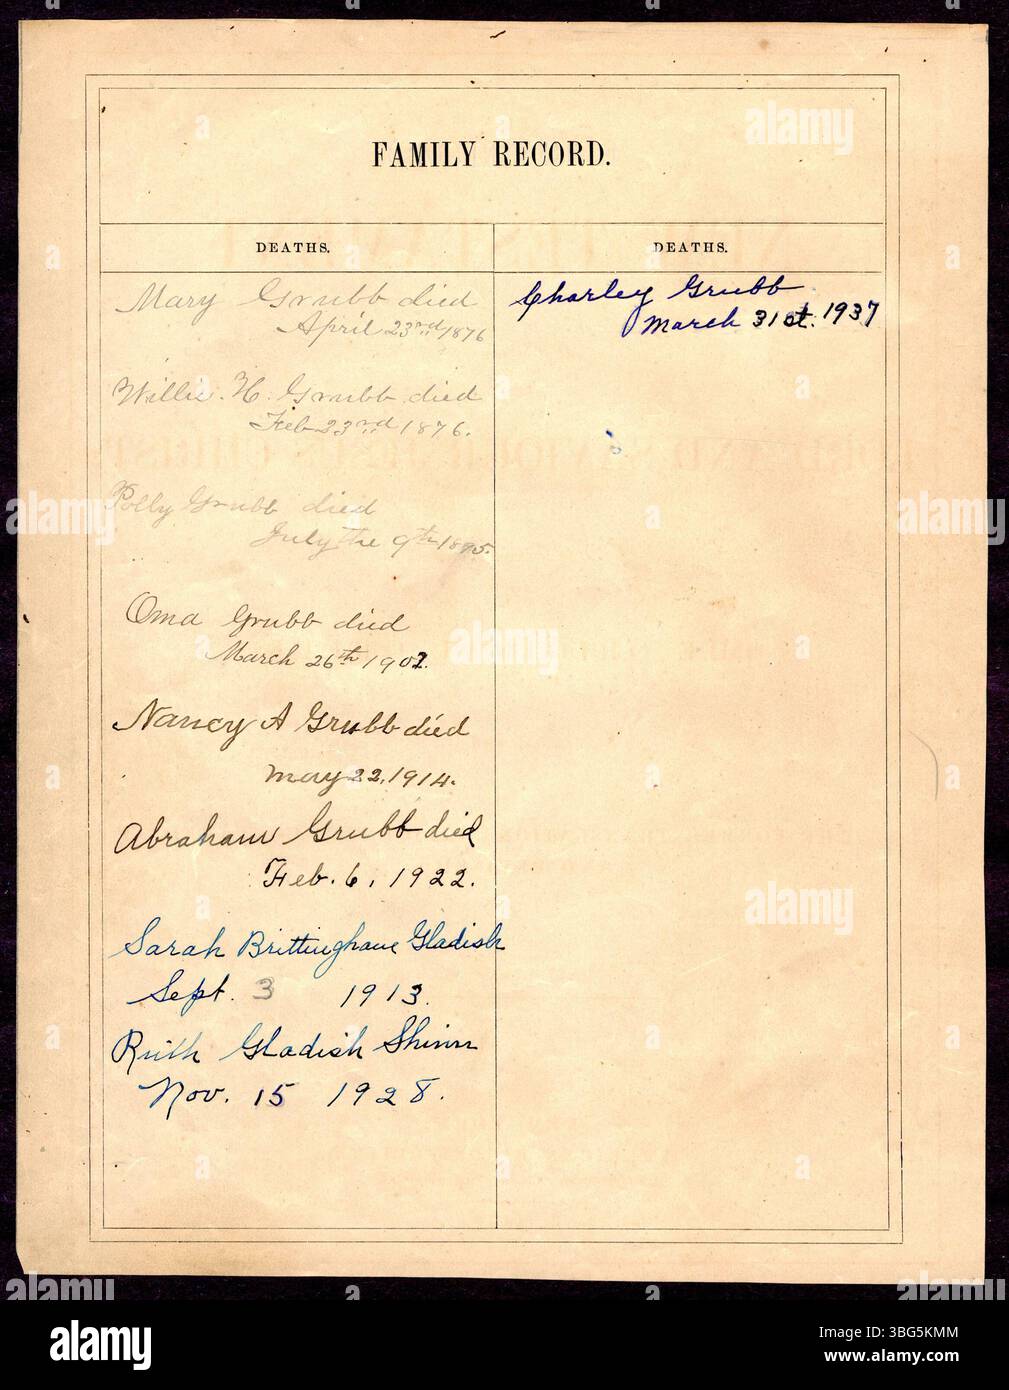 FAMILY RECORD.
DEATHS.
Mary Grubb died
April 23rd 1876
Willie. H. Grubb died
Feb 23rd 1876.
Polly Grubb died
July the 9th 1895.
Oma Grubb died
March 26th 1902.
Nancy A Grubb died
May 22, 1914.
Abraham Grubb died
Feb. 6, 1922.
Sarah Brittinghame Gladish
Sept. 3 1913.
Ruth Gladish Shinn
Nov. 15 1928.
DEATHS.
Charley Grubb
March 31st. 1937
alamy
alamy
alamy
alamy
alamy
alamy
alamy
alamy
alamy
a
a
a
a
a
a
a
a
alamy
Image ID: 3BG5KMM
www.alamy.com